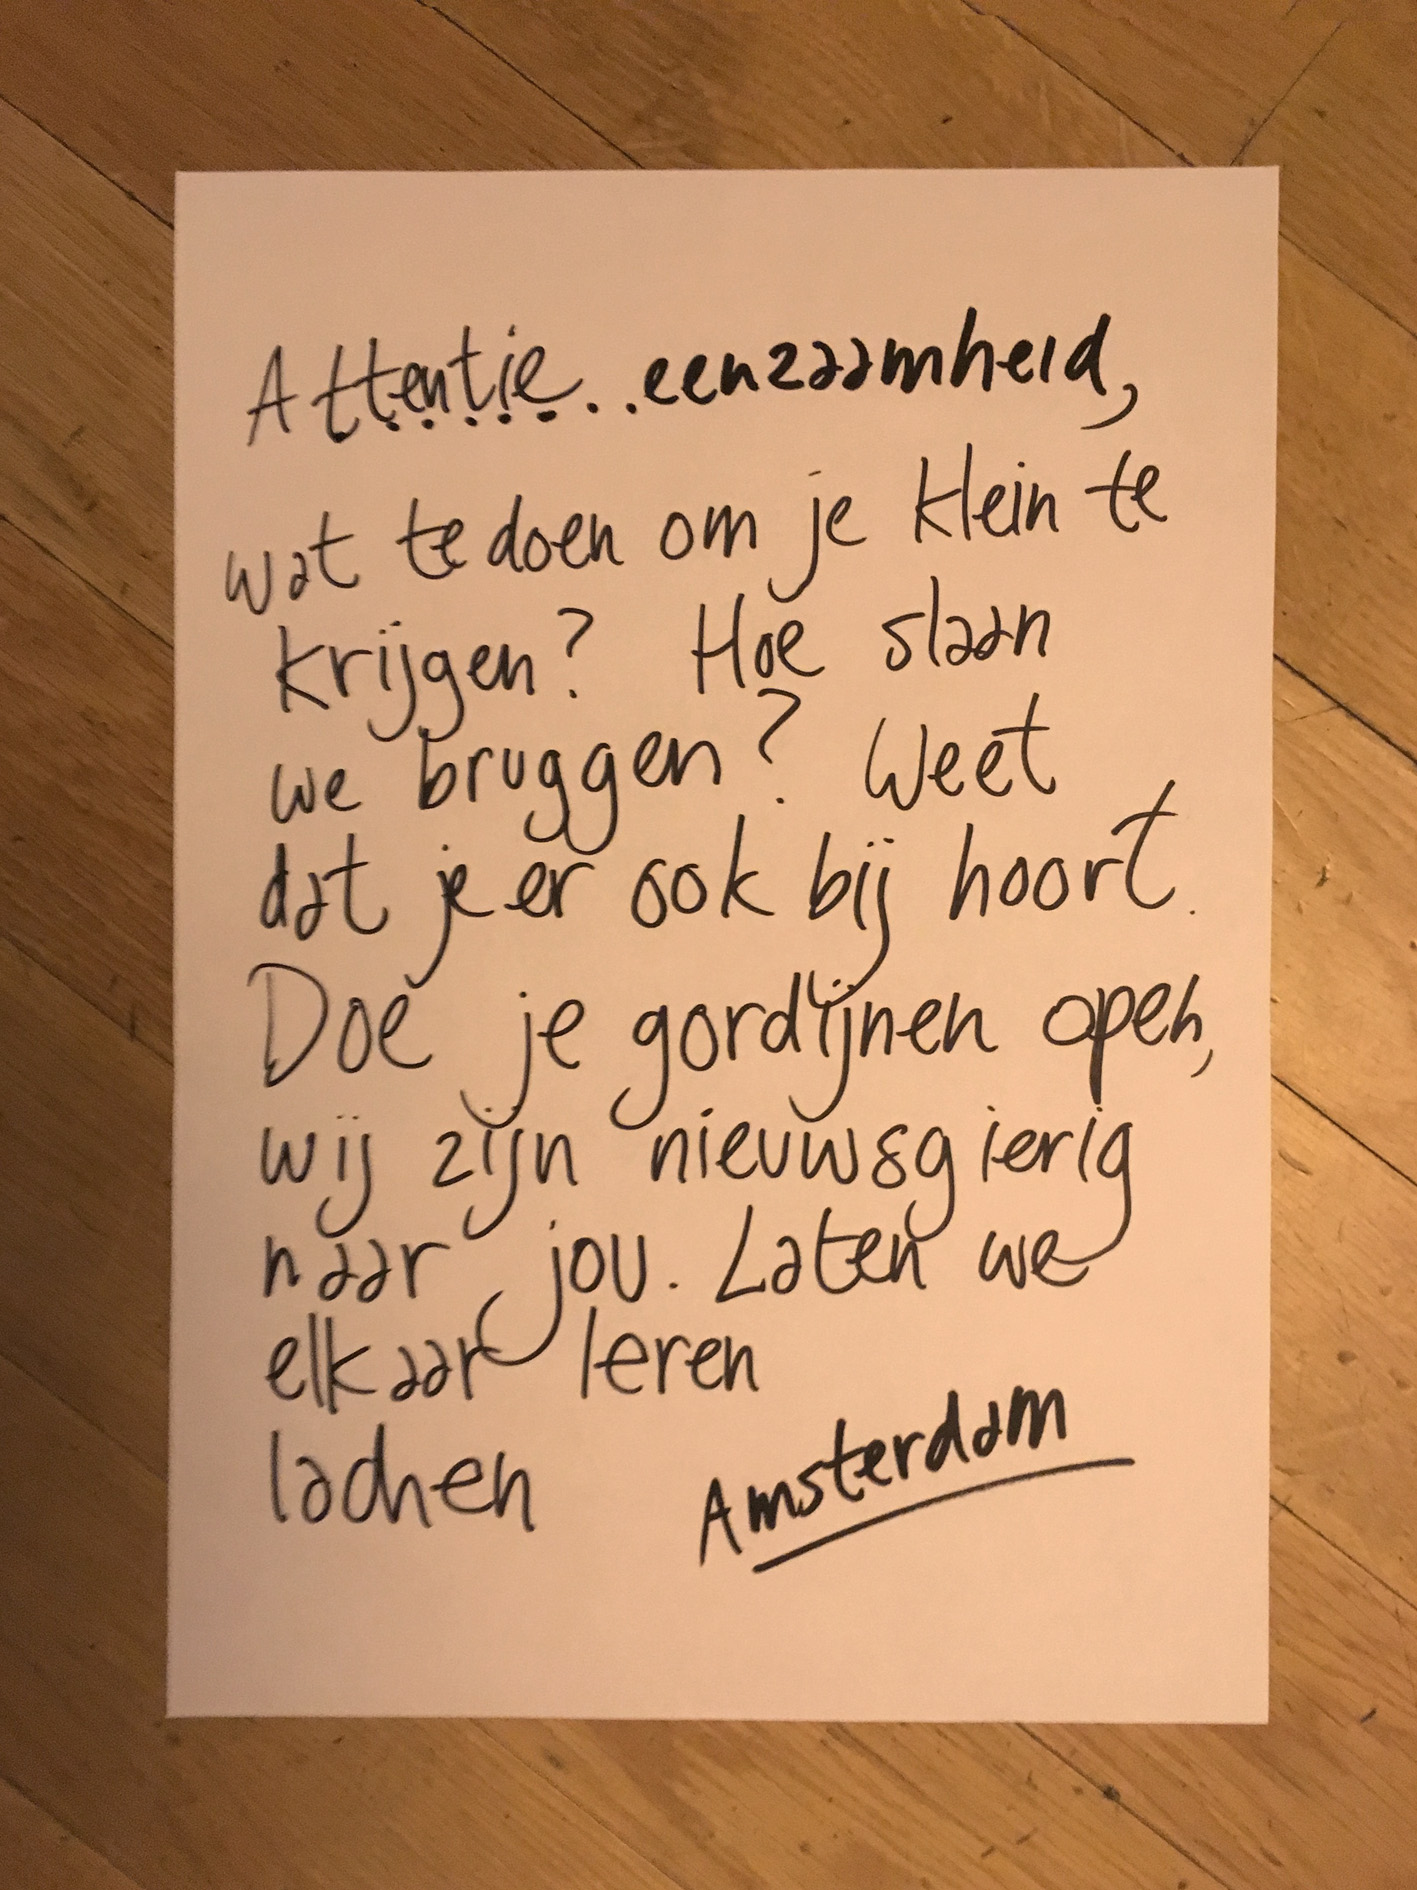 Attentie...eenzaamheid,
wat te doen om je klein te
krijgen? Hoe slaan
we bruggen? Weet
dat je er ook bij hoort.
Doe je gordijnen open,
wij zijn nieuwsgierig
naar jou. Laten we
elkaar leren
lachen
Amsterdam